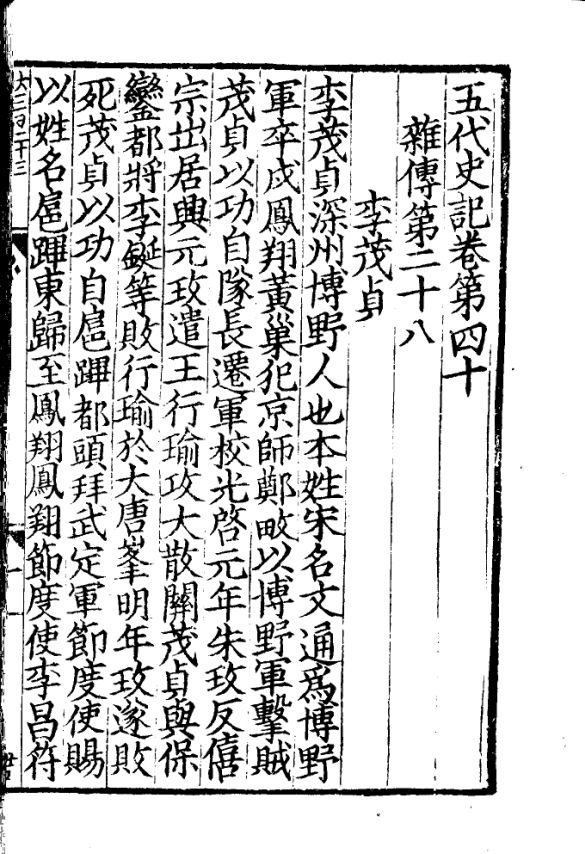 五代史記卷第四十
雜傳第二十八
李茂貞
李茂貞深州博野人也本姓宋名文通爲博野
軍卒戍鳳翔黃巢犯京師鄭畋以博野軍擊賊
茂貞以功自隊長遷軍校光啓元年朱玫反僖
宗出居興元玫遣王行瑜攻大散關茂貞與保
鑾都將李鋋等敗行瑜於大唐峯明年玫遂敗
死茂貞以功自扈蹕都頭拜武定軍節度使賜
以姓名扈蹕東歸至鳳翔鳳翔節度使李昌符